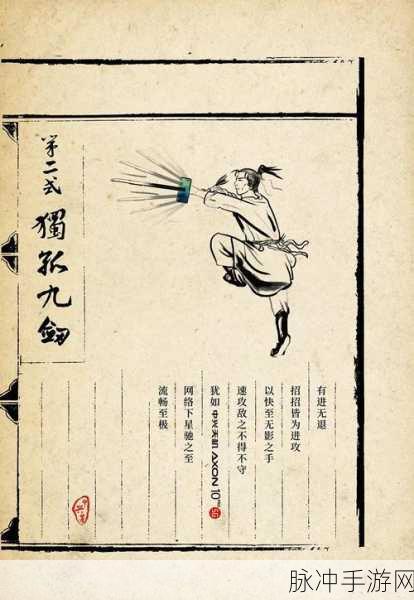 第二式
獨孤九劍
有进无退
招招皆为进攻
以快至无影之手
速攻敌之不得不守
犹如中兴天机AXON 10 Pro 5G
网络下星驰之至
流畅至极
脉冲手游网